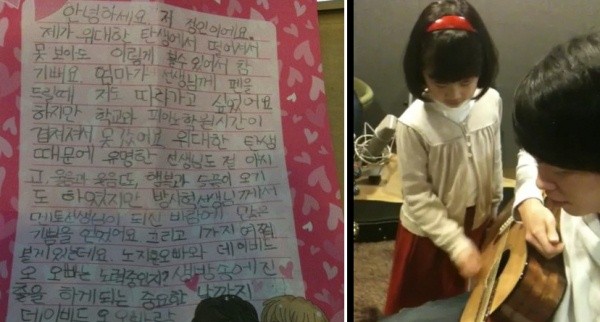 안녕하세요 저 정인이에요.
제가 위대한 탄생에서 떨어져서
못 보아도 이렇게 볼수 있어서 참
기뻐요 엄마가 선생님께 펜을
드릴때 저도 따라가고 싶었어요
하지만 학교과 피아노 학원시간이
겹쳐져서 못 갔어요 위대한 탄생
때문에 유명한 선생님도 절 아시
고, 울음과 웃음도, 행복과 슬픔이 오기
도 하였지만 방시혁선생님께서
멘토선생님이 되신 바람에
기쁨을 얻었어요 그리고 1가지 여쭤
볼게 있는데요. 노지훈오빠와 데이비드
오 오빠는 노력중인지? 생방송에 진
출을 하게 되는 중요한 날까지
데이비드 오